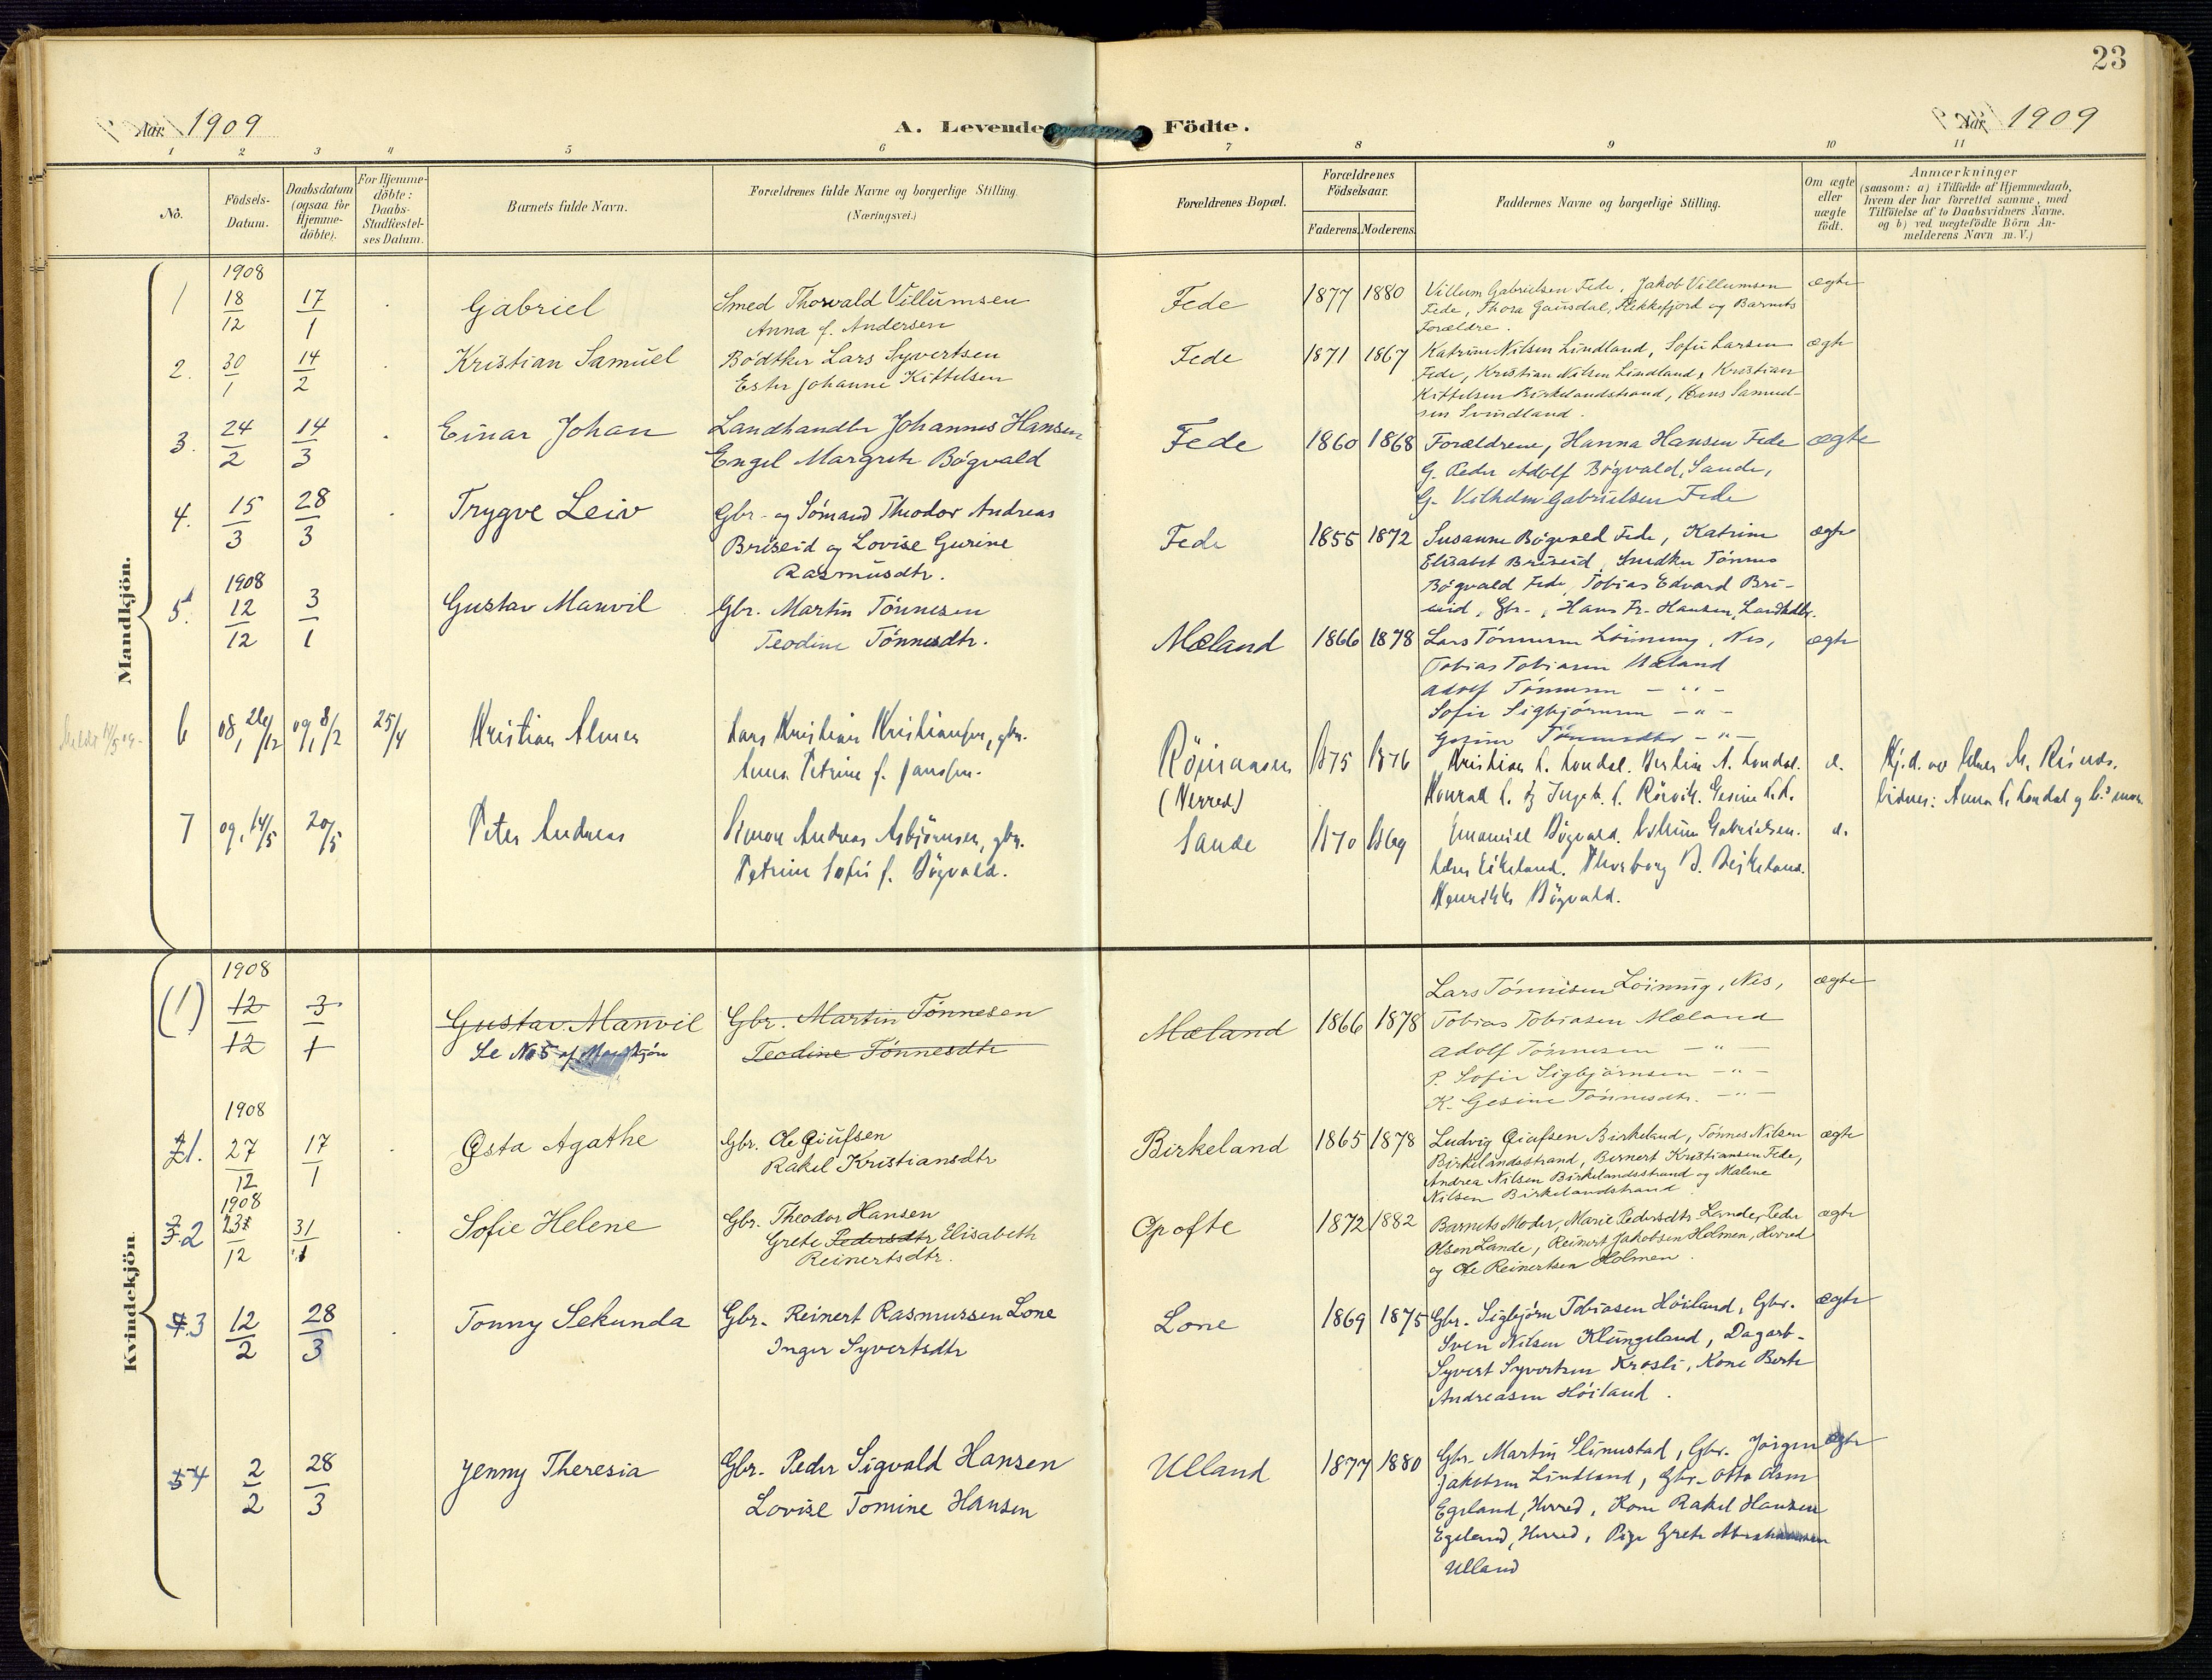 23
Aar 1909
A. Levende Födte.
Aar 1909
1 2 3 4 5 6 7 8 9 10 11
No.
Födsels-Datum.
Daabsdatum (ogsaa for Hjemme-döbte).
For Hjemme-döbte: Daabs-Stadfæstel-ses Datum.
Barnets fulde Navn.
Forældrenes fulde Navne og borgerlige Stilling.
(Næringsvei.)
Forældrenes Bopæl.
Forældrenes Födselsaar.
Faderens. Moderens.
Faddernes Navne og borgerlige Stilling.
Om ægte eller uægte födt.
Anmærkninger
(saasom: a) i Tilfælde af Hjemmedaab,
hvem der har forrettet samme, med
Tilföielse af to Daabsvidners Navne.
og b) ved uægtefödte Börn An-
melderens Navn m. V.)
Mandkjön.
1 1908 18/12 17/1 Gabriel
Smed Thorvald Villumsen
Anna f. Andersen
Fede 1877 1880
Villum Gabrielsen Fede, Jakob Villumsen
Fede, Thora Gausdal, Flekkefjord og Barnets
Forældre.
ægte
2. 30/1 14/2 Kristian Samuel
Bødtker Lars Syvertsen
Ester Johanne Kittelsen
Fede 1871 1867
Katrine Nilsen Lindland, Sofie Larsen
Fede, Kristian Nilsen Lindland, Kristian
Kittelsen Birkelandstrand, Hans Samuel-
sen Svindland.
ægte
3. 24/2 14/3 Einar Johan
Landhandler Johannes Hansen
Engel Margrete Bøgvald
Fede 1860 1868
Forældrene, Hanna Hansen Fede
G. Peder Adolf Bøgvald, Sande,
G. Vilhelm Gabrielsen Fede
ægte
4. 15/3 28/3 Trygve Leiv
Gbr. og Sømand Theodor Andreas
Briseid og Lovise Gurine
Rasmusdtr.
Fede 1855 1872
Susanne Bøgvald Fede, Katrine
Elisabet Briseid, Snedker Tønnes
Bøgvald Fede, Tobias Edvard Bri-
seid, Gbr., Hans Fr. Hansen, Landhdlr.
ægte
5. 1908 12/12 3/1 Gustav Manvil
Gbr. Martin Tønnesen
Teodine Tønnesdtr.
Mæland 1866 1878
Lars Tønnesen Løining, Nes,
Tobias Tobiasen Mæland
Adolf Tønnesen — " —
Sofie Sigbjørnsen — " —
Gesine Tønnesdtr — " —
ægte
6 08, 26/12 09, 8/2 25/4 Kristian Almer
Lars Kristian Kristiansen, gbr.
Anna Petrine f. Jansen.
(Herred)
1875 1876
7 09, 14/5 20/5 Peter Andreas
Simon Andreas Asbjörnsen, gbr.
Petrine Sofie f. Bögvald.
Sande 1870 1869
Emanuel Bögvald.
Henrikke Bögvald.
Kvindekjön.
(1) 1908 12/12 3/1 Gustav Manvil
Se No 5 af Mandkjøn
Gbr. Martin Tønnesen
Teodine Tønnesdtr
Mæland 1866 1878
Lars Tønnesen Løining, Nes,
Tobias Tobiasen Mæland
Adolf Tønnesen — " —
P. Sofie Sigbjørnsen — " —
K. Gesine Tønnesdtr. — " —
ægte
2 1. 1908 27/12 17/1 Østa Agathe
Gbr. Ole
Rakel Kristiansdtr
Birkeland 1865 1878
Ludvig Birkeland, Tønnes Nilsen
Birkelandsstrand, Bernert Kristiansen Fede,
Andrea Nilsen Birkelandsstrand og Malene
Nilsen Birkelandstrand.
ægte
3. 2 1908 23/12 31/1 Sofie Helene
Gbr. Theodor Hansen
Grete Pedersdtr Elisabeth
Reinertsdtr.
Opofte 1872 1882
Barnets Moder, Marie Pedersdtr Lande, Peder
Olsen Lande, Reinert Jakobsen Holmen, Herred
og Ole Reinertsen Holmen.
ægte
4. 3 12/2 28/3 Tonny Sekunda
Gbr. Reinert Rasmussen Lone
Inger Syvertsdtr
Lone 1869 1875
Gbr. Sigbjørn Tobiasen Høiland, Gbr.
Sven Nilsen Klungeland, Dagarb.
Syvert Syvertsen Krosli, Kone Berte
Andreasen Høiland.
ægte
5 4 2/2 28/3 Jenny Theresia
Gbr. Peder Sigvald Hansen
Lovise Tomine Hansen
Ulland 1877 1880
Gbr. Martin Slimestad, Gbr. Jørgen
Jakobsen Lindland, Gbr. Otto Olsen
Egeland, Herred, Kone Rakel Hansen
Egeland, Herred, Pige Grete Abrahamsen
Ulland
ægte